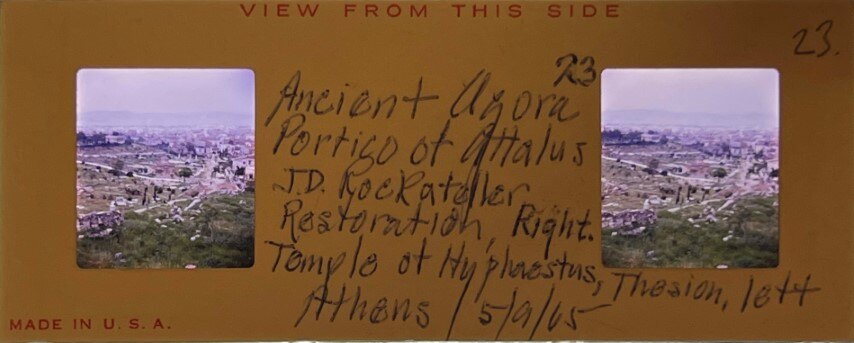 VIEW FROM THIS SIDE
23.
23
Ancient Agora
Portico of Attalus
J.D. Rockafeller
Restoration, Right.
Temple of Hyphaestus, Thesion, left
Athens / 5/9/65
MADE IN U.S.A.